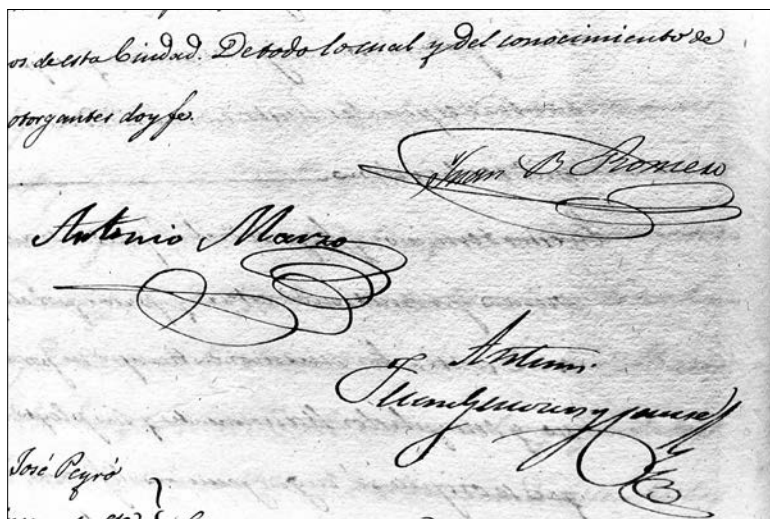 os de esta Ciudad. De todo lo cual y del conocimiento de
otorgantes doy fe.
Juan B Romero
Antonio Marzo
Ante mi
José Peyró